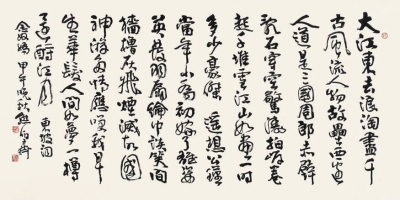 大江東去浪淘盡千
古風流人物故壘西邊
人道是三國周郎赤壁
亂石穿空驚濤拍岸卷
起千堆雪江山如畫一時
多少豪傑 遙想公瑾
當年小喬初嫁了雄姿
英發羽扇綸巾談笑間
檣櫓灰飛煙滅故國
神遊多情應笑我早
生華髮人間如夢一樽
還酹江月 東坡詞
念奴嬌 甲午晚秋